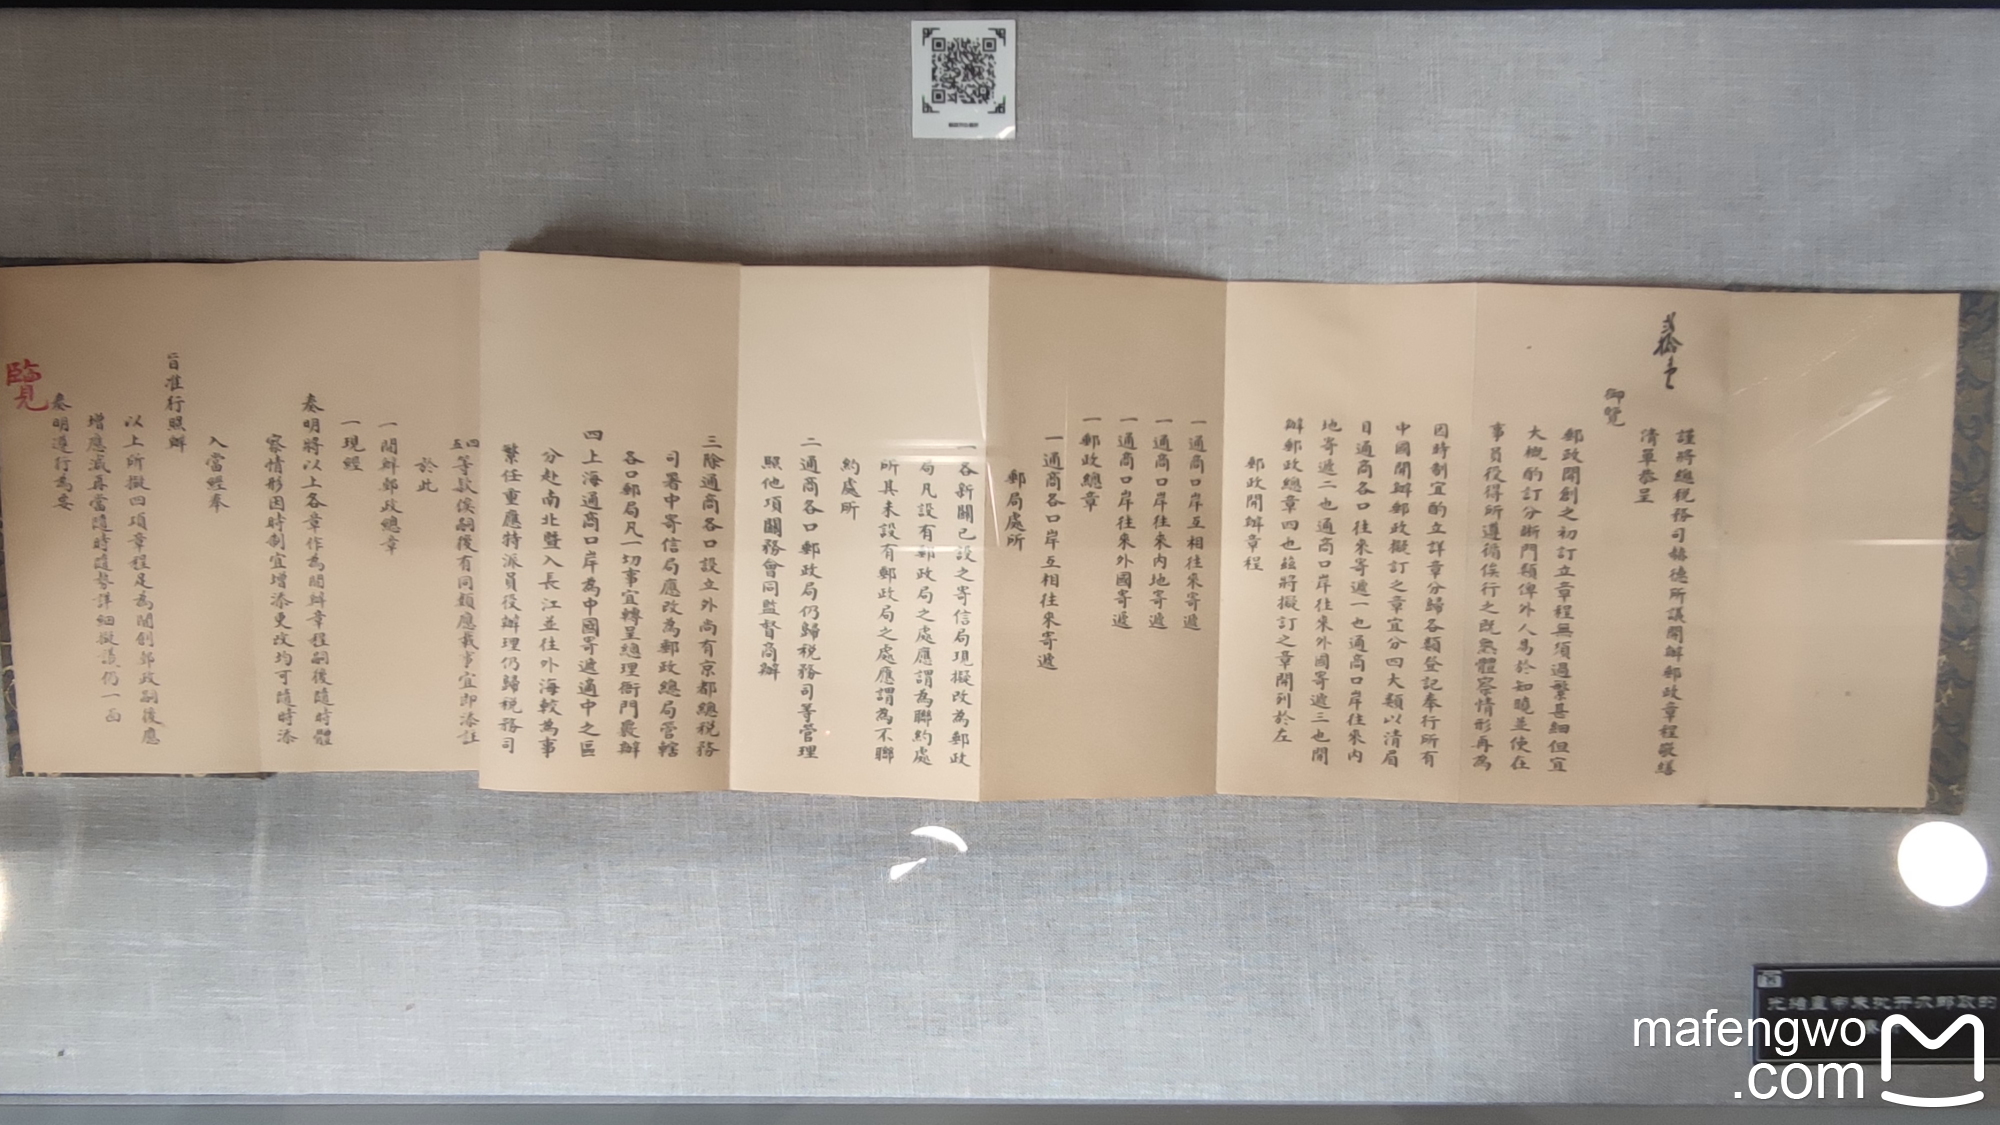 謹將總稅務司赫德所議開辦郵政章程敬繕
清單恭呈
御覽
郵政開創之初訂立章程無須過繁甚細但宜
大概酌訂分晰門類俾外人易於知曉並使在
事員役得所遵循俟行之既熟體察情形再為
因時制宜酌立詳章分歸各類登記奉行所有
中國開辦郵政擬訂之章宜分四大類以清眉
目通商各口往來寄遞一也通商口岸往來內
地寄遞二也通商口岸往來外國寄遞三也開
辦郵政總章四也茲將擬訂之章開列於左
郵政開辦章程
一通商口岸互相往來寄遞
一通商口岸往來內地寄遞
一通商口岸往來外國寄遞
一郵政總章
一通商各口岸互相往來寄遞
郵局處所
一各新關已設之寄信局現擬改為郵政
局凡設有郵政局之處應謂為聯約處
所其未設有郵政局之處應謂為不聯
約處所
二通商各口郵政局仍歸稅務司等管理
照他項關務會同監督商辦
三除通商各口設立外尚有京都總稅務
司署中寄信局應改為郵政總局管轄
各口郵局凡一切事宜轉呈總理衙門覈辦
四上海通商口岸為中國寄遞適中之區
分赴南北暨入長江並往外海較為事
繁任重應特派員役辦理仍歸稅務司
四五等款俟嗣後有同類應載事宜即添註
於此
一開辦郵政總章
一現經
奏明將以上各章作為開辦章程嗣後隨時體
察情形因時制宜增添更改均可隨時添
入當經奉
旨准行照辦
以上所擬四項章程足為開創郵政嗣後應
增應減再當隨時隨勢詳細擬議仍一面
奏明遵行為妥
覽
光緒皇帝朱批开办邮政的
mafengwo
.com